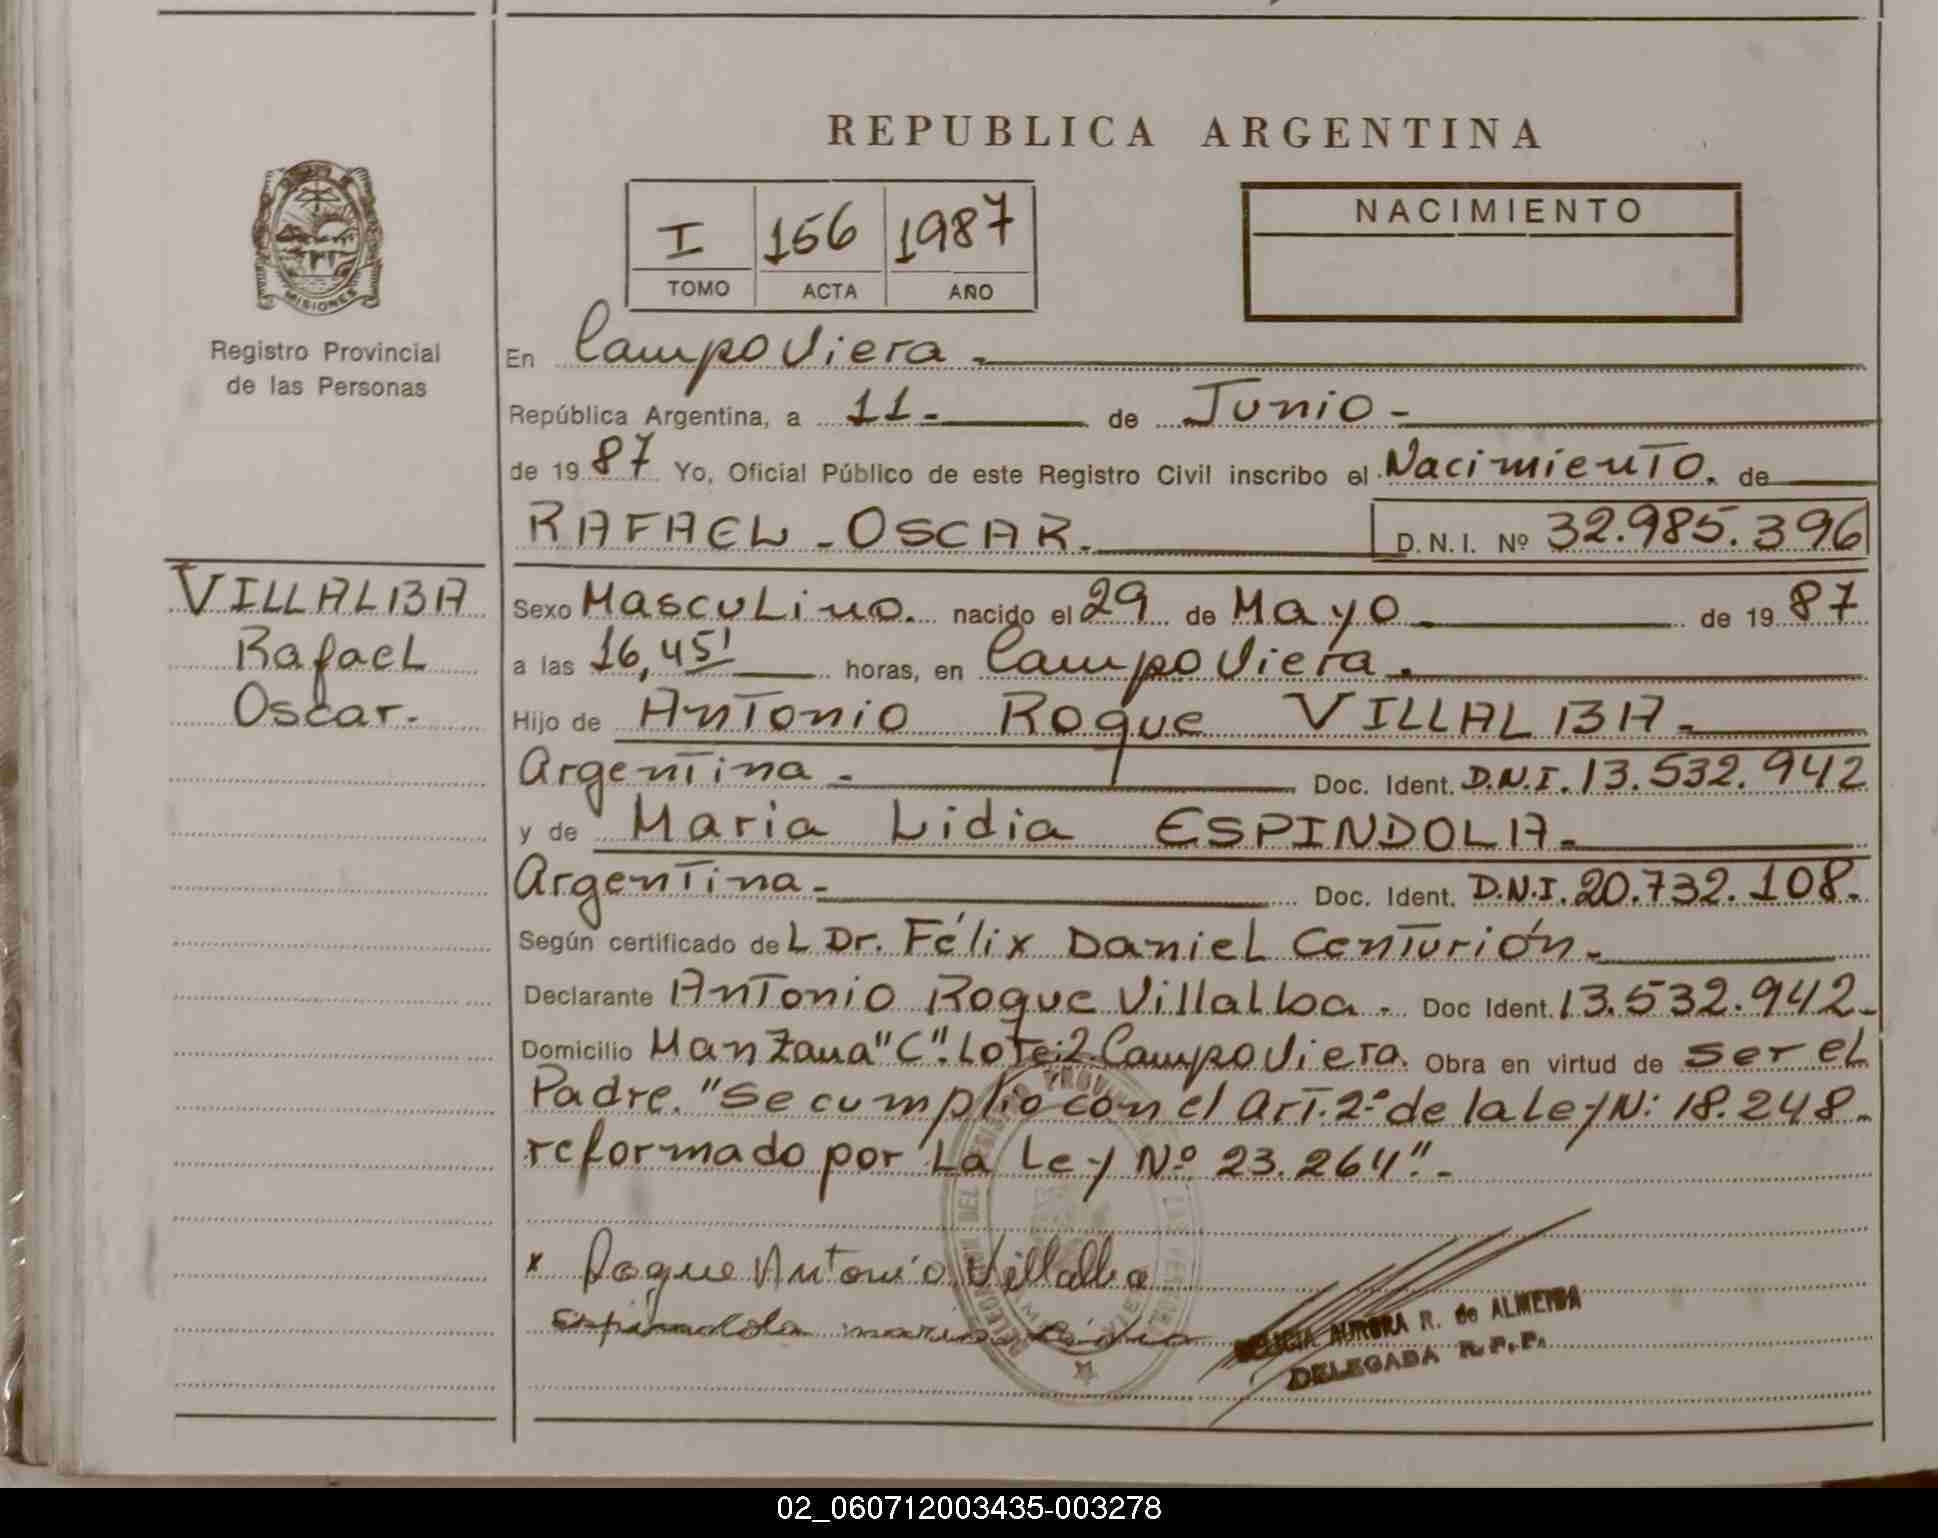 REPUBLICA ARGENTINA
I 156 1987
TOMO ACTA AÑO
NACIMIENTO
MISIONES
Registro Provincial
de las Personas
En Campo Viera.
República Argentina, a 11- de Junio-
de 1987 Yo, Oficial Público de este Registro Civil inscribo el Nacimiento. de
RAFAEL - OSCAR. D. N. I. Nº 32.985.396
VILLALBA
Rafael
Oscar.
Sexo Masculino. nacido el 29 de Mayo de 1987
a las 16,45' horas, en Campo Viera.
Hijo de Antonio Roque VILLALBA-
Argentina - Doc. Ident. D.N.I. 13.532.942
y de Maria Lidia ESPINDOLA-
Argentina- Doc. Ident. D.N.I. 20.732.108.
Según certificado deL Dr. Félix Daniel Centurión-
Declarante Antonio Roque Villalba. Doc Ident. 13.532.942-
Domicilio Manzana "C". Lote:2. Campo Viera. Obra en virtud de ser el
Padre. "Se cumplio con el Art. 2º de la Ley N: 18.248-
reformado por La Ley Nº 23.264".-
x Roque Antonio Villalba
Espindola maria Lidia
AURORA R. de ALMEIDA
DELEGADA R.P.P.
02_060712003435-003278